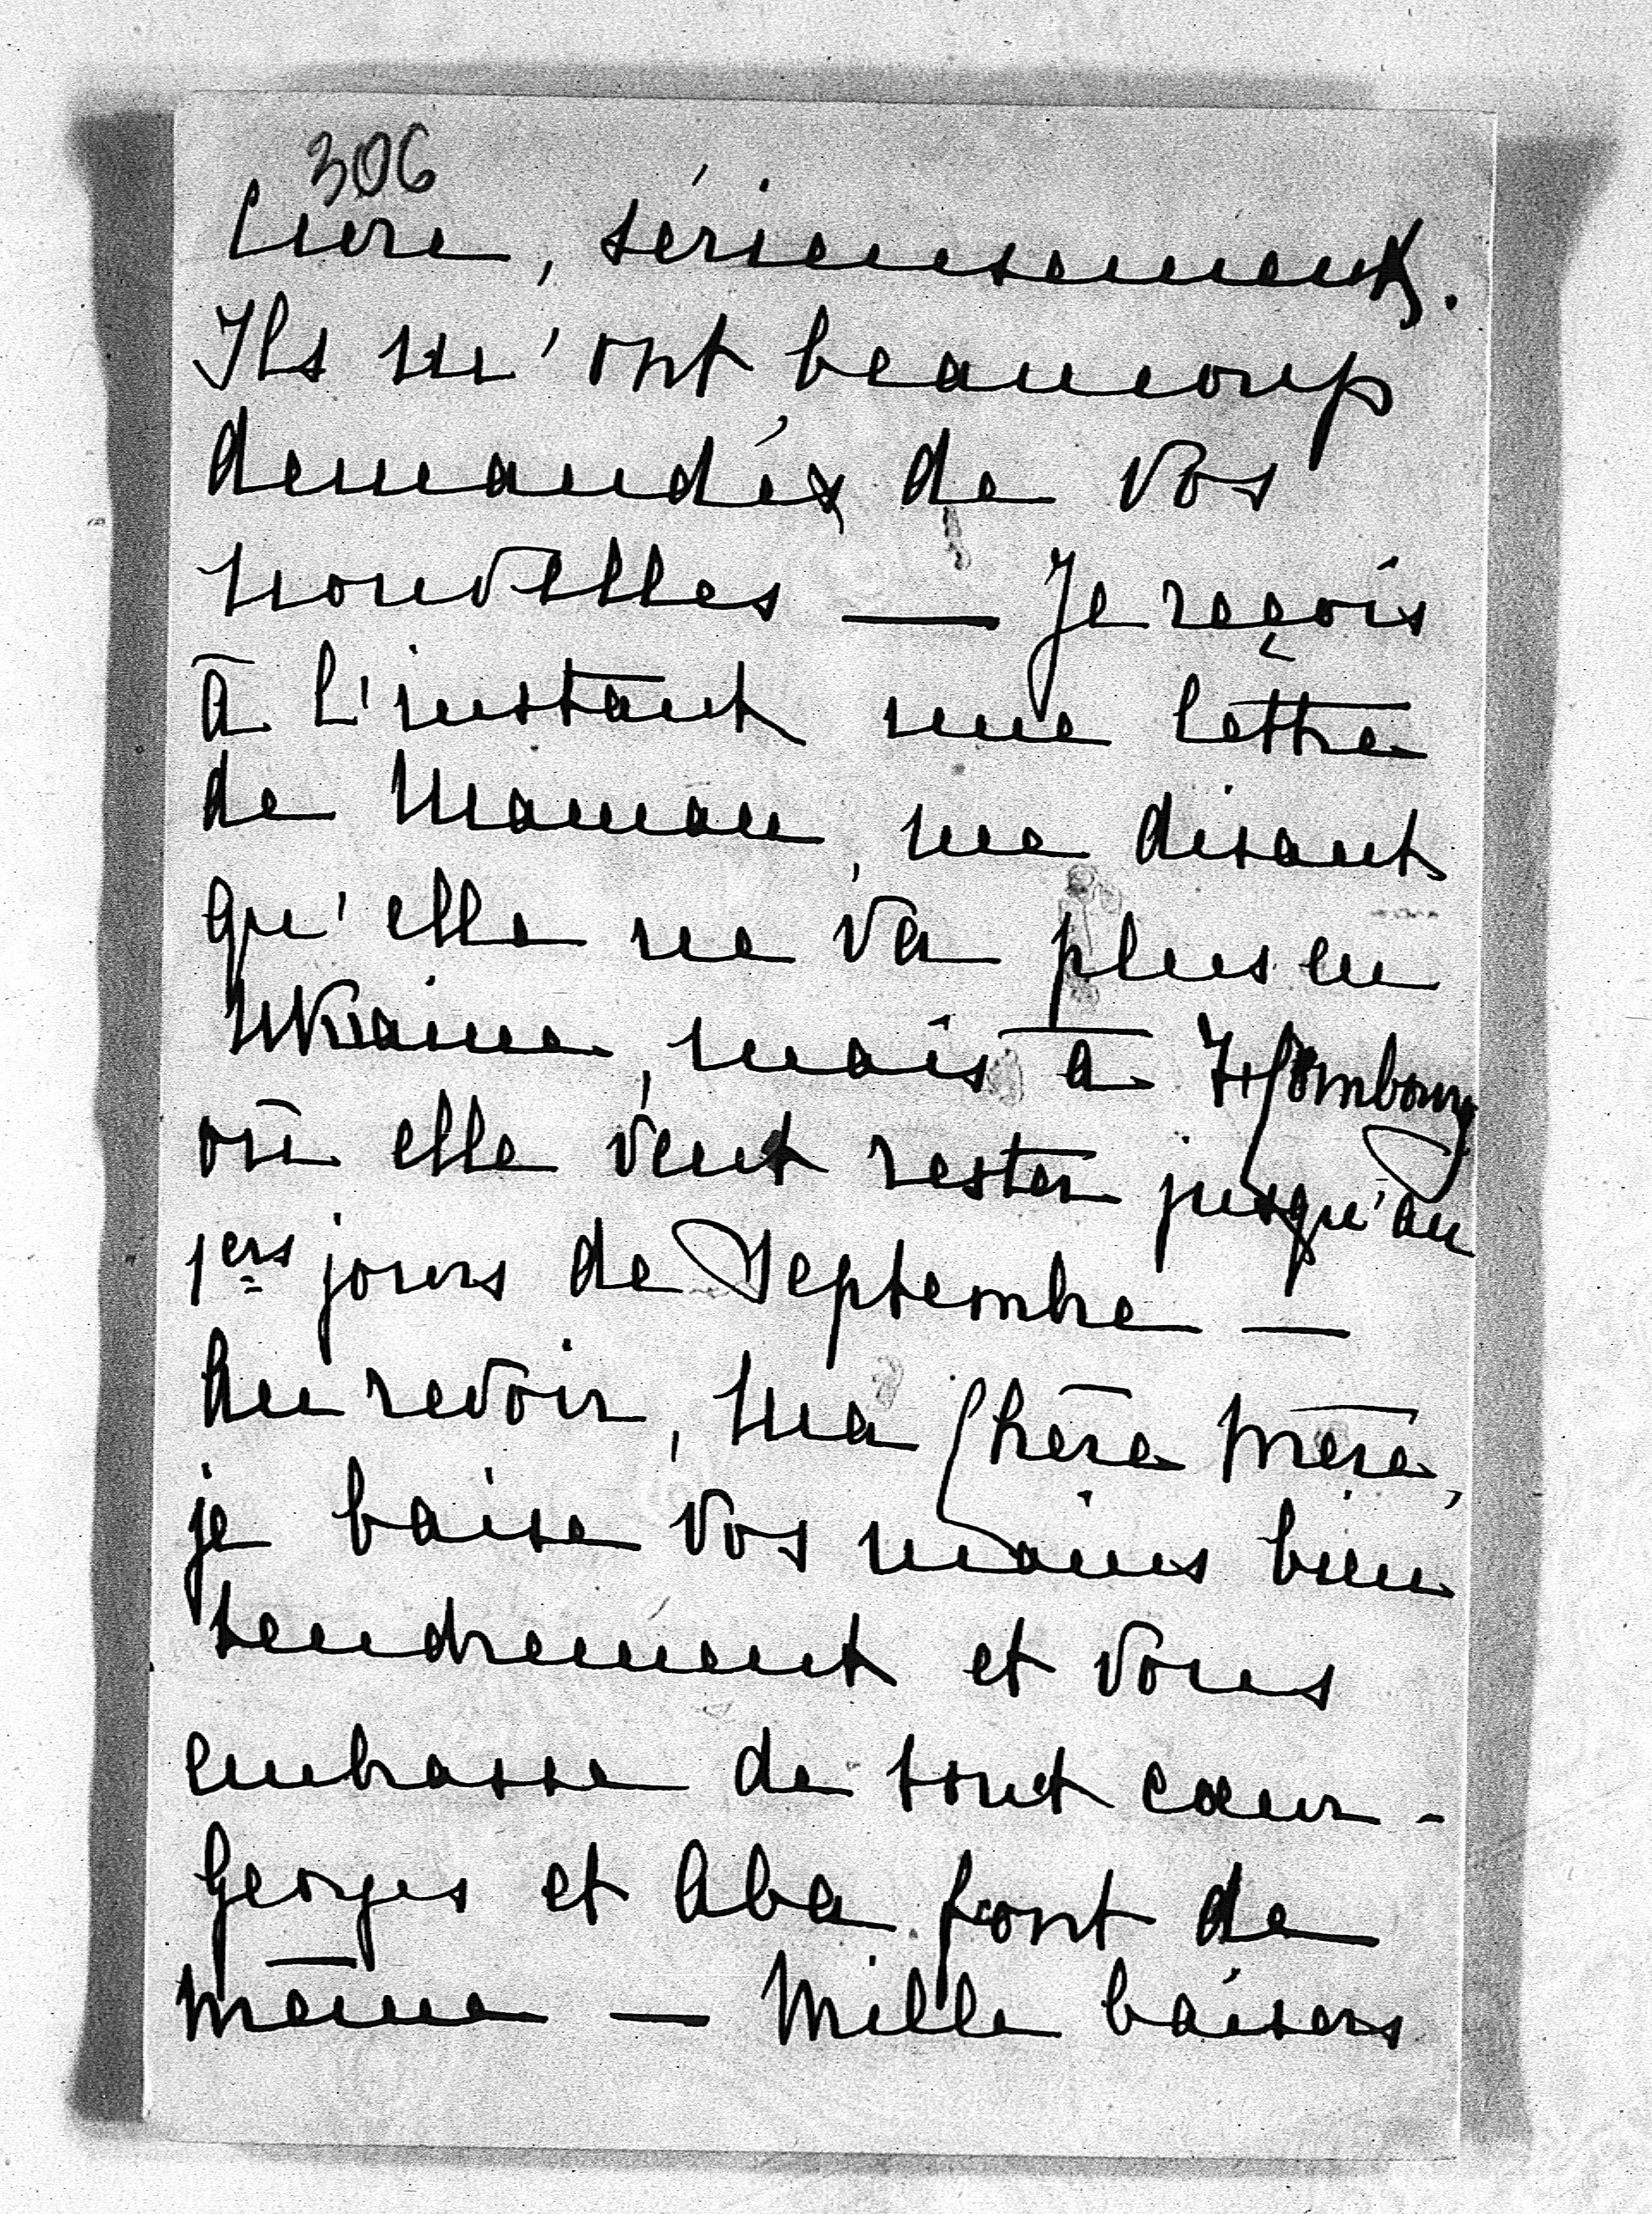 306
lière, sérieusement.
Ils m'ont beaucoup
demandé de vos
nouvelles — Je reçois
à l'instant une lettre
de Maman, me disant
qu'elle ne va plus en
Ukraine, mais à Hombourg
où elle veut rester jusqu'au
1ers jours de Septembre —
Au revoir, ma Chère Mère,
je baise vos mains bien
tendrement et vous
embrasse de tout cœur -
Georges et Aba font de
même — Mille baisers